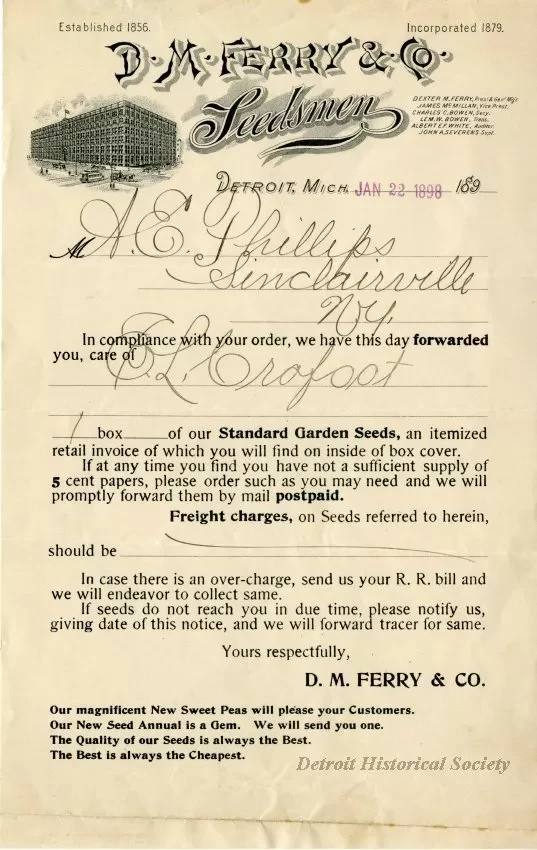 Established 1856.
Incorporated 1879.
D. M. FERRY & CO.
Seedsmen
DEXTER M. FERRY, Prest & Genl Mgr.
JAMES McMILLAN, Vice Prest.
CHARLES C. BOWEN, Secy.
LEM. W. BOWEN, Treas.
ALBERT E. F. WHITE, Auditor.
JOHN A. SEVERENS Supt.
DETROIT, MICH. JAN 22 1898 189
M A. E. Phillips
Sinclairville
NY.
In compliance with your order, we have this day forwarded
you, care of
E. L. Crofoot
1 box of our Standard Garden Seeds, an itemized
retail invoice of which you will find on inside of box cover.
If at any time you find you have not a sufficient supply of
5 cent papers, please order such as you may need and we will
promptly forward them by mail postpaid.
Freight charges, on Seeds referred to herein,
should be
In case there is an over-charge, send us your R. R. bill and
we will endeavor to collect same.
If seeds do not reach you in due time, please notify us,
giving date of this notice, and we will forward tracer for same.
Yours respectfully,
D. M. FERRY & CO.
Our magnificent New Sweet Peas will please your Customers.
Our New Seed Annual is a Gem. We will send you one.
The Quality of our Seeds is always the Best.
The Best is always the Cheapest.
Detroit Historical Society